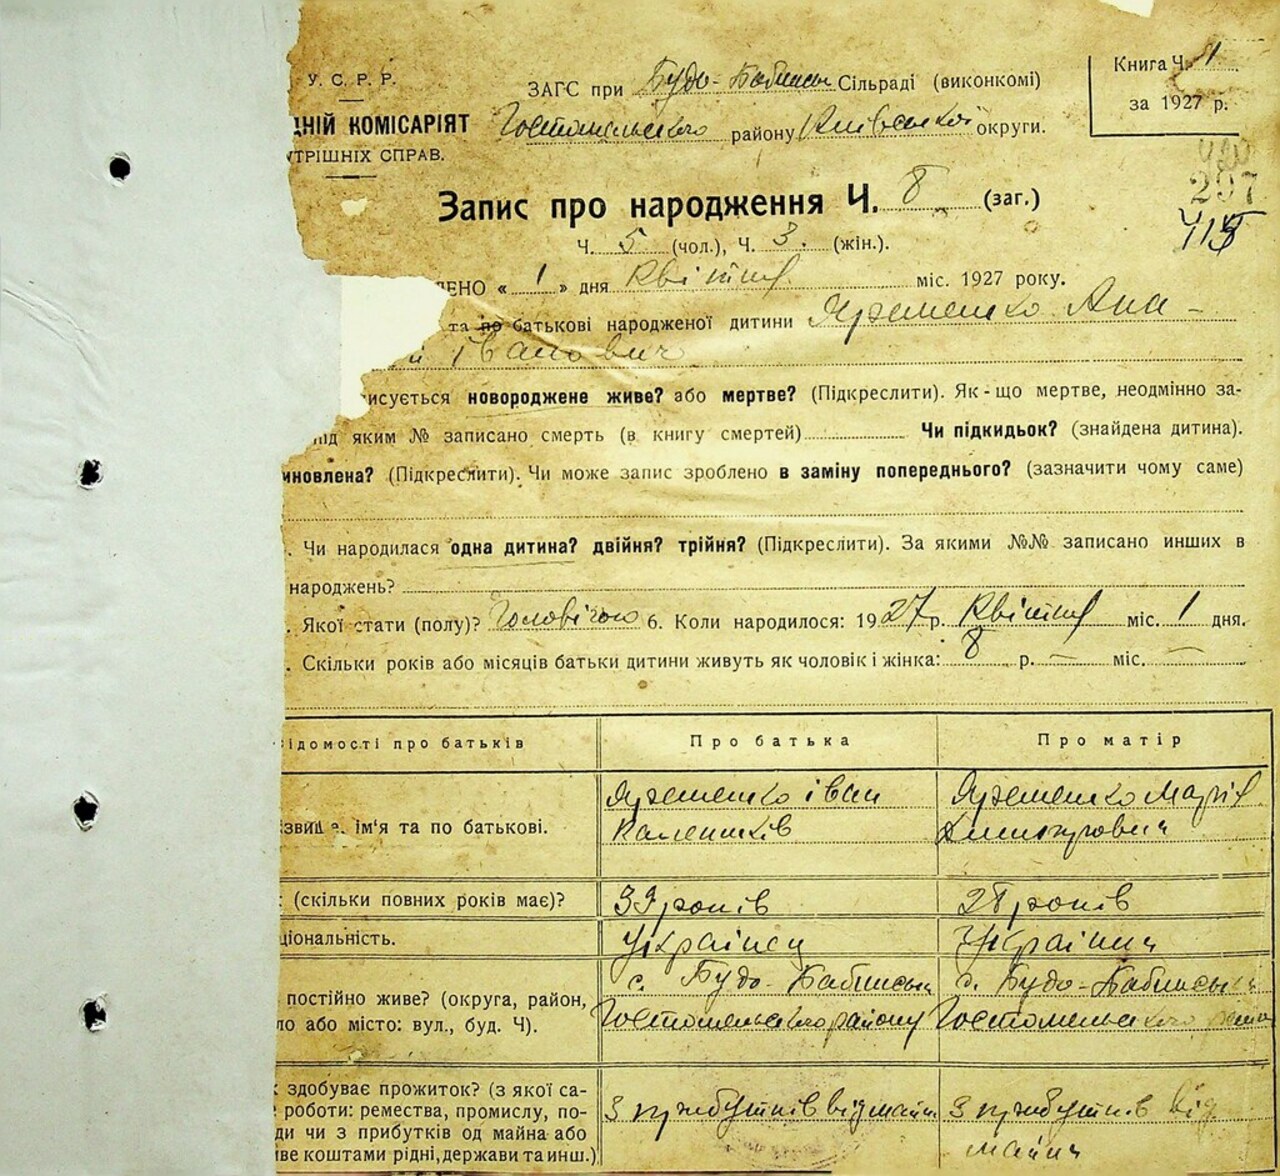 У. С. Р. Р.
ЗАГС при Будо-Бабинськ Сільраді (виконкомі)
Книга Ч. 1
за 1927 р.
ДНІЙ КОМІСАРІЯТ
Гостомельського району Київської округи.
УТРІШНІХ СПРАВ.
297
Запис про народження Ч. 8 (заг.)
Ч. 5 (чол.), Ч. 3. (жін.).
ДЕНО « 1 » дня Квітня міс. 1927 року.
та по батькові народженої дитини Яременко Ана-
й Іванович
исується новороджене живе? або мертве? (Підкреслити). Як-що мертве, неодмінно за-
під яким № записано смерть (в книгу смертей) Чи підкидьок? (знайдена дитина).
иновлена? (Підкреслити). Чи може запис зроблено в заміну попереднього? (зазначити чому саме)
. Чи народилася одна дитина? двійня? трійня? (Підкреслити). За якими №№ записано инших в
народжень?
. Якої стати (полу)? Чоловічою 6. Коли народилося: 1927 р. Квітня міс. 1 дня.
. Скільки років або місяців батьки дитини живуть як чоловік і жінка: 8 р. — міс. —
ідомості про батьків Про батька Про матір
Яременко Іван Яременко Марія
ізвище, ім'я та по батькові. Каленіків
(скільки повних років має)? 39 років 28 років
ціональність. Українец Українка
с. Будо-Бабинськ с. Будо-Бабинськ
постійно живе? (округа, район,
ло або місто: вул., буд. Ч). Гостомельського району Гостомельського
к здобуває прожиток? (з якої са-
роботи: ремества, промислу, по- З прибутків від майн З прибутків від
ди чи з прибутків од майна або майна
иве коштами рідні, держави та инш.)